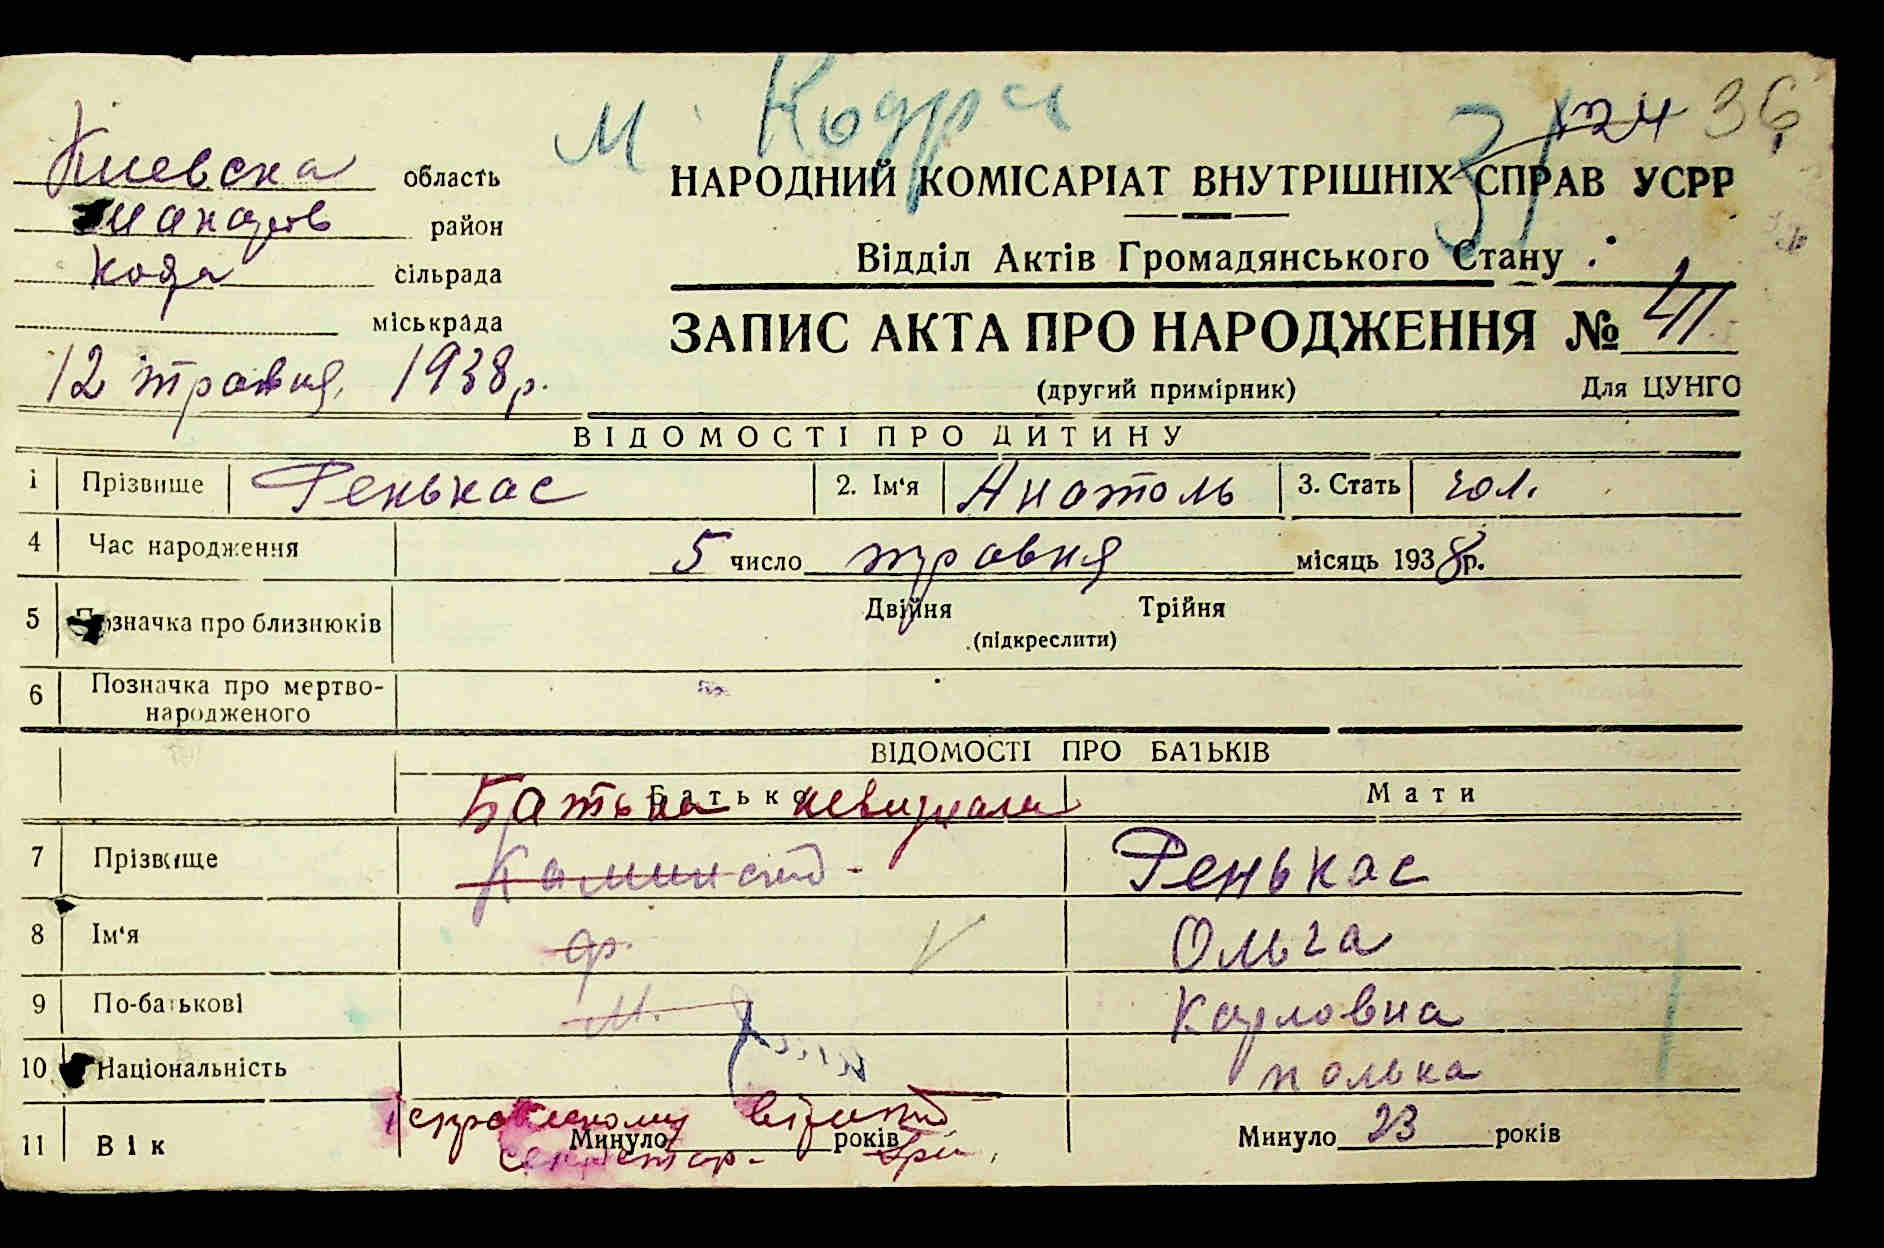 м. Кодра
31 124 36
Киевска область
район
Кодра сільрада
міськрада
12 травня 1938 р.
НАРОДНИЙ КОМІСАРІАТ ВНУТРІШНІХ СПРАВ УСРР
Відділ Актів Громадянського Стану
ЗАПИС АКТА ПРО НАРОДЖЕННЯ № 411
(другий примірник) Для ЦУНГО
ВІДОМОСТІ ПРО ДИТИНУ
1 Прізвище Ренькас 2. Ім'я Анатоль 3. Стать чол.
4 Час народження 5 число травня місяць 1938 р.
5 Позначка про близнюків Двійня Трійня
(підкреслити)
6 Позначка про мертво-
народженого
ВІДОМОСТІ ПРО БАТЬКІВ
Батько Мати
Батька
7 Прізвище Ренькас
8 Ім'я Ф. Ольга
9 По-батькові М. Карловна
10 Національність полька
11 Вік Минуло років Минуло 23 років
секретар